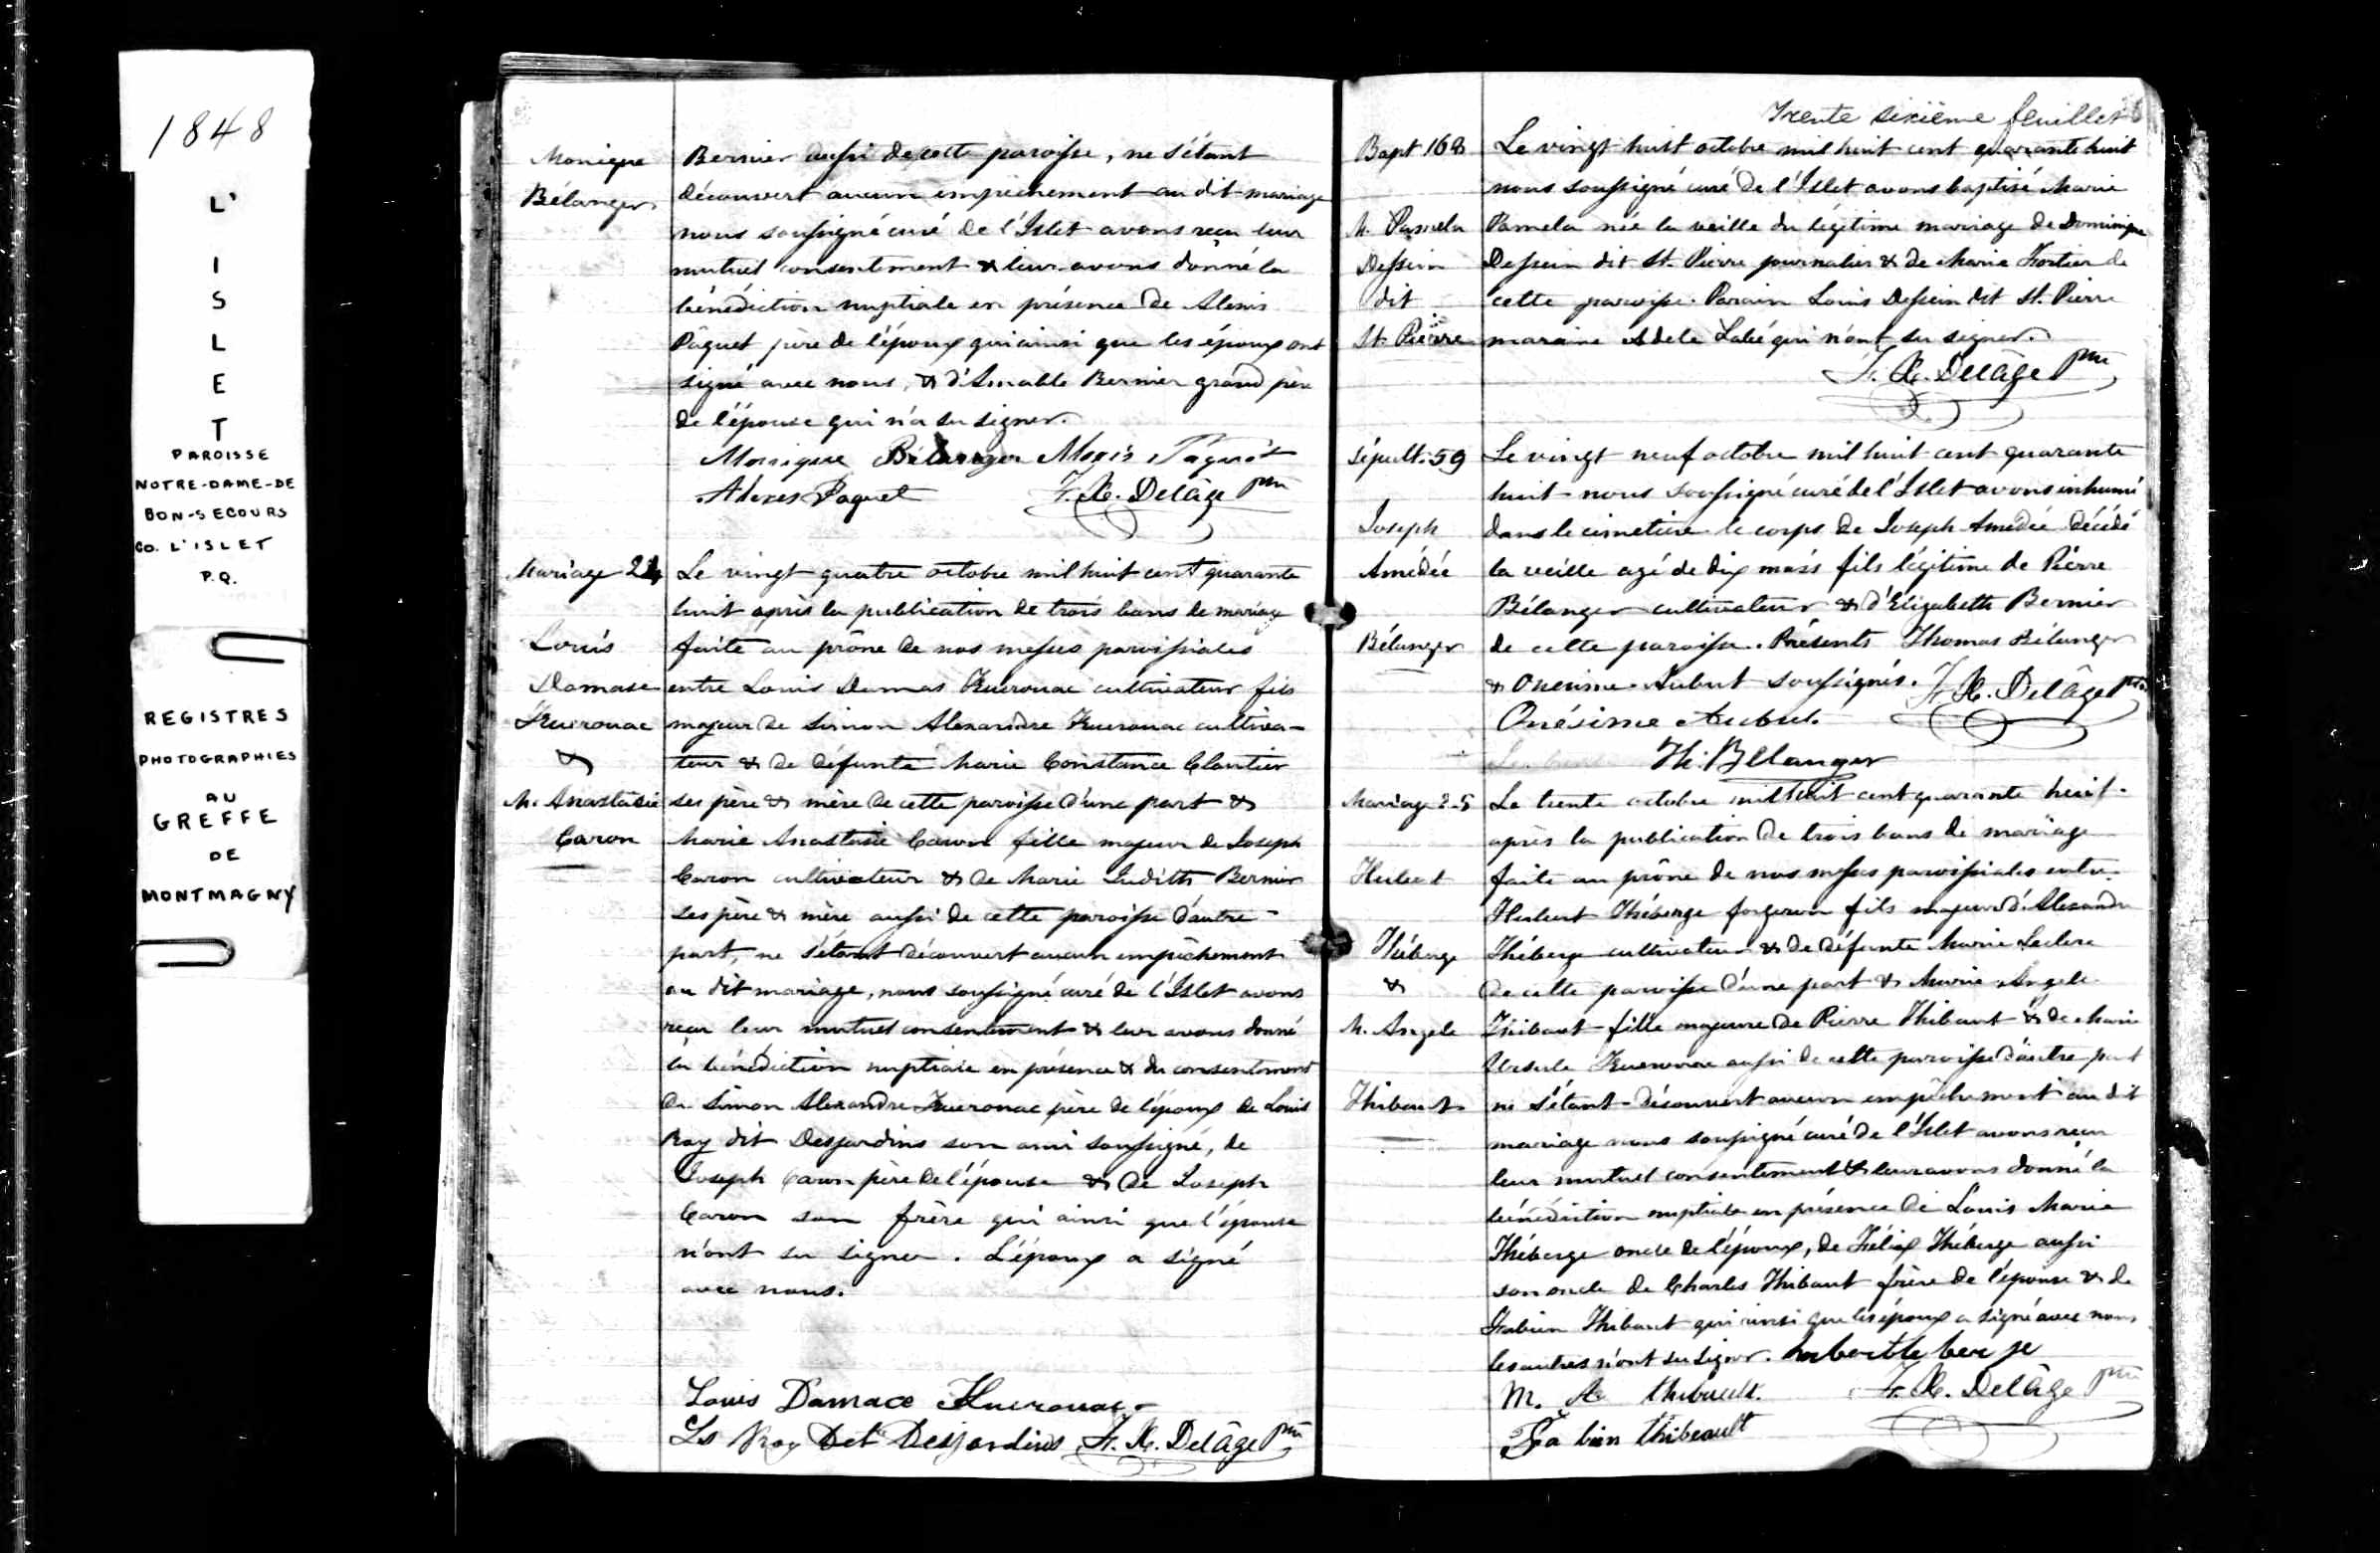 1848
L'
I
S
L
E
T
PAROISSE
NOTRE-DAME-DE
BON-SECOURS
CO. L'ISLET
P.Q.
REGISTRES
PHOTOGRAPHIES
AU
GREFFE
DE
MONTMAGNY
Monique
Bélanger
Bernier aussi de cette paroisse, ne s'étant
découvert aucun empêchement au dit mariage
nous soussigné curé de l'Islet avons reçu leur
mutuel consentement & leur avons donné la
bénédiction nuptiale en présence de Alexis
Pâquet père de l'époux qui ainsi que les époux ont
signé avec nous, & d'Amable Bernier grand père
de l'épouse qui n'a su signer.
Monique Bélanger Alexis Paquet
Alexes Paquet F. X. Delâge Ptre
Mariage 24
Louis
Damase
Kuerouac
&
M. Anastasie
Caron
Le vingt quatre octobre mil huit cent quarante
huit après la publication de trois bans de mariage
faite au prône de nos messes paroissiales
entre Louis Damas Kuerouac cultivateur fils
majeur de Simon Alexandre Kuerouac cultiva-
teur & de défunte Marie Constance Cloutier
ses père & mère de cette paroisse d'une part &
Marie Anastasie Caron fille majeur de Joseph
Caron cultivateur & de Marie Judith Bernier
ses père & mère aussi de cette paroisse d'autre
part, ne s'étant découvert aucun empêchement
au dit mariage, nous soussigné curé de l'Islet avons
reçu leur mutuel consentement & leur avons donné
la bénédiction nuptiale en présence & du consentement
de Simon Alexandre Kuerouac père de l'époux de Louis
Roy dit Desjardins son ami soussigné, de
Joseph Caron père de l'épouse & de Joseph
Caron son frère qui ainsi que l'épouse
n'ont su signer. L'époux a signé
avec nous.
Louis Damace Kuerouac
Ls Roy Dit Desjardins F. X. Delâge Ptre
Trente sixième feuillet
Bapt 168
M. Pamela
Dessein
dit
St. Pierre
Le vingt huit octobre mil huit cent quarante huit
nous soussigné curé de l'Islet avons baptisé Marie
Pamela née la veille du légitime mariage de Dominique
Dessein dit St. Pierre journalier & de Marie Fortier de
cette paroisse. Parain Louis Dessein dit St. Pierre
maraine Adele Labé qui n'ont su signer.
F. X. Delâge Ptre
Sépult. 59
Joseph
Amédée
Bélanger
Le vingt neuf octobre mil huit cent quarante
huit nous soussigné curé de l'Islet avons inhumé
dans le cimetière le corps de Joseph Amédée décédé
la veille agé de dix mois fils légitime de Pierre
Bélanger cultivateur & d'Elizabeth Bernier
de cette paroisse. Présents Thomas Bélanger
& Onesime Aubut soussignés. F. X. Delâge Ptre
Onésime Aubut
Th. Bélanger
Mariage 25
Hubert
Théberge
&
M. Angele
Thibaut
Le trente octobre mil huit cent quarante huit
après la publication de trois bans de mariage
faite au prône de nos messes paroissiales entre
Hubert Théberge forgeron fils majeur d'Alexandre
Théberge cultivateur & de défunte Marie Leclerc
de cette paroisse d'une part & Marie Angele
Thibaut fille majeure de Pierre Thibaut & de Marie
Ursule Kuerouac aussi de cette paroisse d'autre part
ne s'étant découvert aucun empêchement au dit
mariage nous soussigné curé de l'Islet avons reçu
leur mutuel consentement & leur avons donné la
bénédiction nuptiale en présence de Louis Marie
Théberge oncle de l'époux, de Félix Théberge aussi
son oncle de Charles Thibaut frère de l'épouse & de
Fabien Thibaut qui ainsi que les époux a signé avec nous
les autres n'ont su signer. ubert te ber je
M. A thibault. F. X. Delâge Ptre
Fa bien thibeault